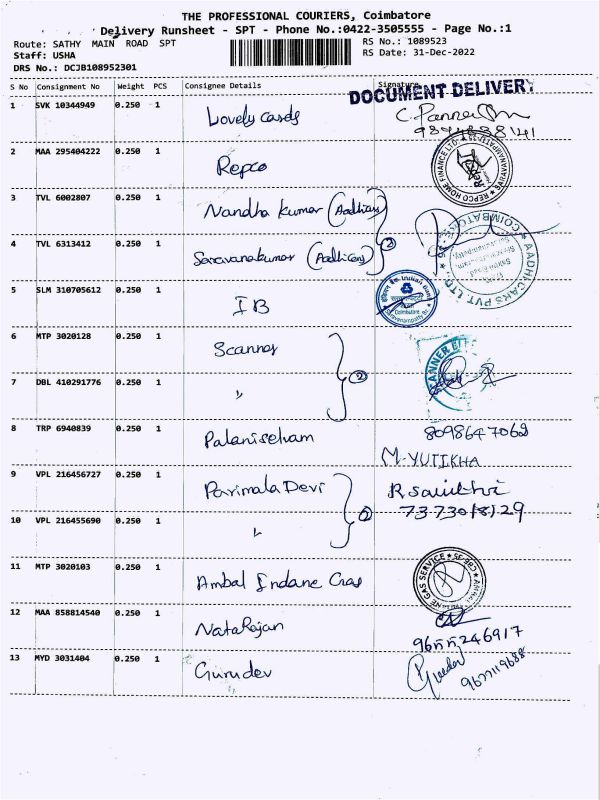 THE PROFESSIONAL COURIERS, Coimbatore
Delivery Runsheet - SPT - Phone No.:0422-3505555 - Page No.:1
Route: SATHY MAIN ROAD SPT
RS No.: 1089523
Staff: USHA
RS Date: 31-Dec-2022
DRS No.: DCJB108952301
S No Consignment No Weight PCS Consignee Details Signature
DOCUMENT DELIVERY
1 SVK 10344949 0.250 1 Lovely Cards
2 MAA 295404222 0.250 1 Repco
REPCO HOME FINANCE LTD.
3 TVL 6002807 0.250 1 Nandha Kumar (Aadhicars)
4 TVL 6313412 0.250 1 Saravanakumar (Aadhicars) 2
AADHI CARS PVT LTD. COIMBATORE
5 SLM 310705612 0.250 1 IB
Indian Bank
Coimbatore
6 MTP 3020128 0.250 1 Scanner
7 DBL 410291776 0.250 1 " 2
8 TRP 6940839 0.250 1 Palaniselvam 8098647062
M. YUTIKHA
9 VPL 216456727 0.250 1 Parimala Devi
7373018129
10 VPL 216455690 0.250 1 " 2
11 MTP 3020103 0.250 1 Ambal Indane Gas
GAS SERVICE
12 MAA 858814540 0.250 1 Natarajan
13 MYD 3031404 0.250 1 Gurudev